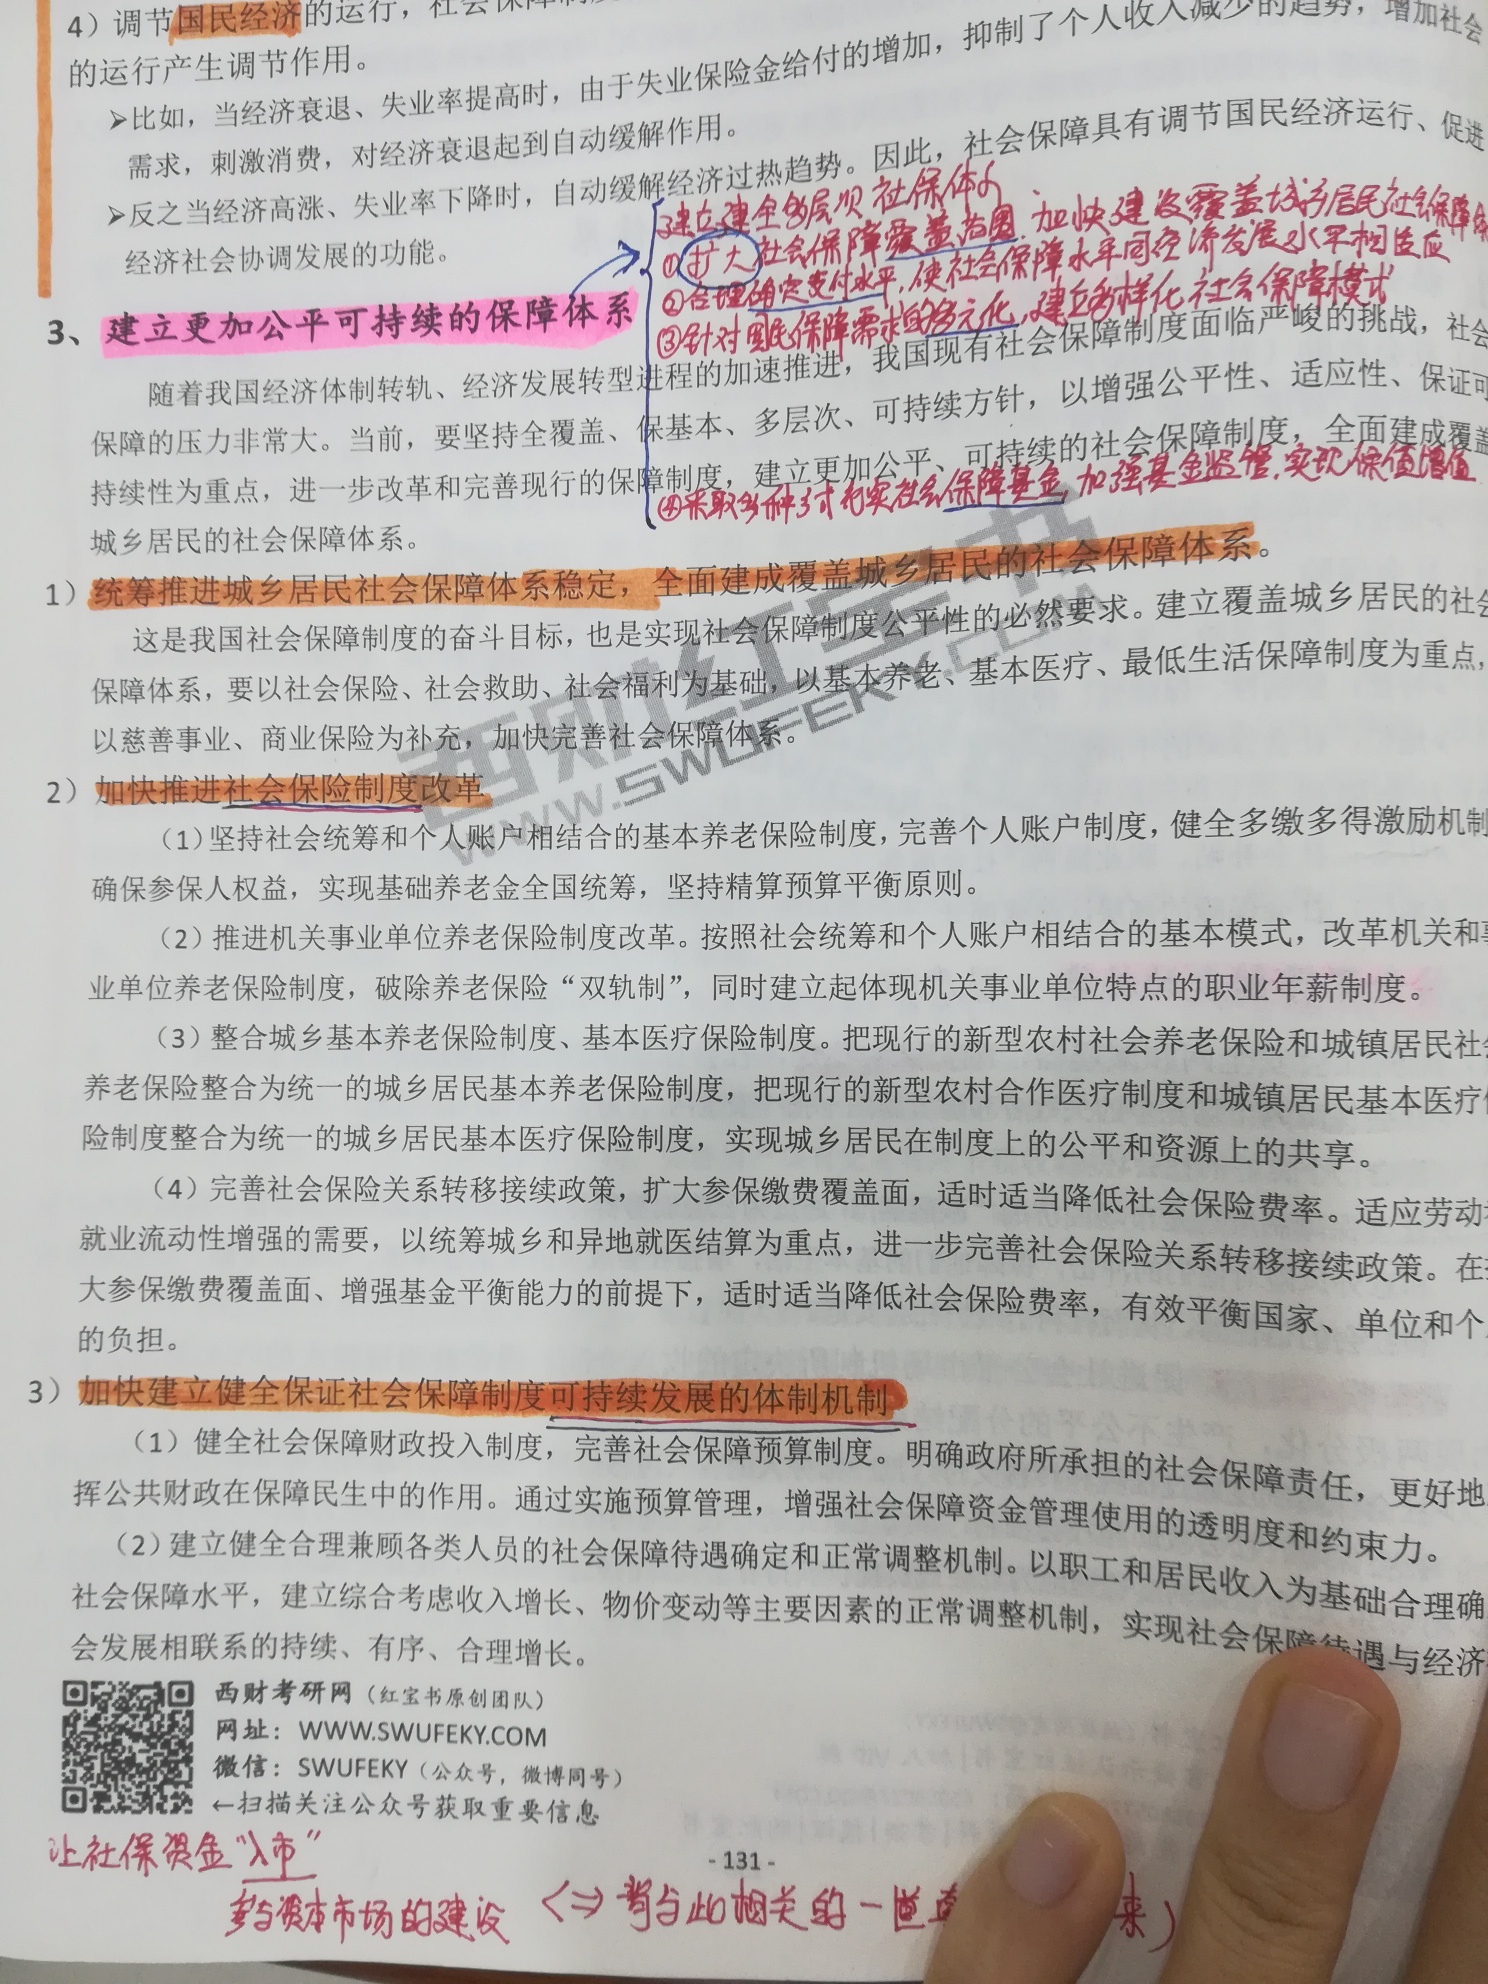 4）调节国民经济的运行，社会保障制度
的运行产生调节作用。
➢比如，当经济衰退、失业率提高时，由于失业保险金给付的增加，抑制了个人收入减少的趋势，增加社会
需求，刺激消费，对经济衰退起到自动缓解作用。
➢反之当经济高涨、失业率下降时，自动缓解经济过热趋势。因此，社会保障具有调节国民经济运行、促进
经济社会协调发展的功能。
建立健全多层次社保体系
①扩大社会保障覆盖范围.加快建设覆盖城乡居民社会保障体
②合理确定支付水平,使社会保障水平同经济发展水平相适应
③针对国民保障需求的多元化,建立多样化社会保障模式
3、建立更加公平可持续的保障体系
随着我国经济体制转轨、经济发展转型进程的加速推进，我国现有社会保障制度面临严峻的挑战，社会
保障的压力非常大。当前，要坚持全覆盖、保基本、多层次、可持续方针，以增强公平性、适应性、保证可
持续性为重点，进一步改革和完善现行的保障制度，建立更加公平、可持续的社会保障制度，全面建成覆盖
④采取多种方式充实社会保障基金,加强基金监管,实现保值增值
城乡居民的社会保障体系。
1）统筹推进城乡居民社会保障体系稳定，全面建成覆盖城乡居民的社会保障体系。
这是我国社会保障制度的奋斗目标，也是实现社会保障制度公平性的必然要求。建立覆盖城乡居民的社会
保障体系，要以社会保险、社会救助、社会福利为基础，以基本养老、基本医疗、最低生活保障制度为重点，
以慈善事业、商业保险为补充，加快完善社会保障体系。
西财红宝书
WWW.SWUFEKY.COM
2）加快推进社会保险制度改革
（1）坚持社会统筹和个人账户相结合的基本养老保险制度，完善个人账户制度，健全多缴多得激励机制
确保参保人权益，实现基础养老金全国统筹，坚持精算预算平衡原则。
（2）推进机关事业单位养老保险制度改革。按照社会统筹和个人账户相结合的基本模式，改革机关和事
业单位养老保险制度，破除养老保险“双轨制”，同时建立起体现机关事业单位特点的职业年薪制度。
（3）整合城乡基本养老保险制度、基本医疗保险制度。把现行的新型农村社会养老保险和城镇居民社会
养老保险整合为统一的城乡居民基本养老保险制度，把现行的新型农村合作医疗制度和城镇居民基本医疗保
险制度整合为统一的城乡居民基本医疗保险制度，实现城乡居民在制度上的公平和资源上的共享。
（4）完善社会保险关系转移接续政策，扩大参保缴费覆盖面，适时适当降低社会保险费率。适应劳动
就业流动性增强的需要，以统筹城乡和异地就医结算为重点，进一步完善社会保险关系转移接续政策。在
大参保缴费覆盖面、增强基金平衡能力的前提下，适时适当降低社会保险费率，有效平衡国家、单位和个
的负担。
3）加快建立健全保证社会保障制度可持续发展的体制机制
（1）健全社会保障财政投入制度，完善社会保障预算制度。明确政府所承担的社会保障责任，更好地
挥公共财政在保障民生中的作用。通过实施预算管理，增强社会保障资金管理使用的透明度和约束力。
（2）建立健全合理兼顾各类人员的社会保障待遇确定和正常调整机制。以职工和居民收入为基础合理确
社会保障水平，建立综合考虑收入增长、物价变动等主要因素的正常调整机制，实现社会保障待遇与经济
会发展相联系的持续、有序、合理增长。
西财考研网（红宝书原创团队）
网址：WWW.SWUFEKY.COM
微信：SWUFEKY（公众号，微博同号）
←扫描关注公众号获取重要信息
让社保资金“入市”
- 131 -
参与资本市场的建设 <=> 背与此相关的一道 来)